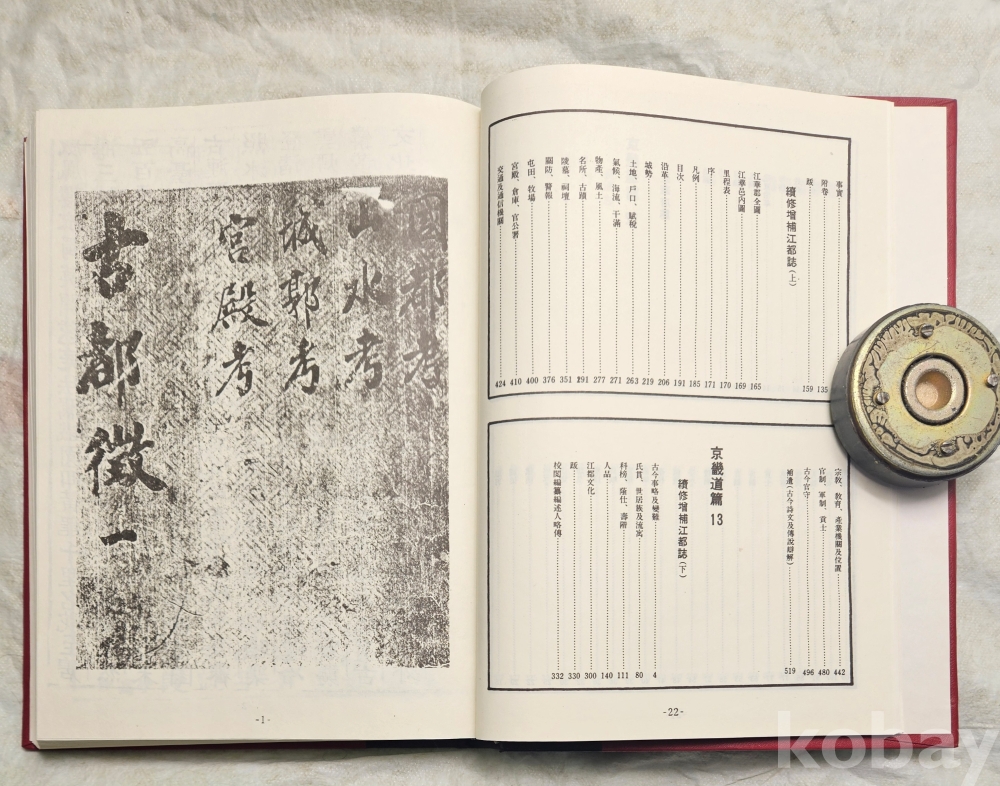 事實
附卷 135
跋 159
續修增補江都誌(上)
江華郡全圖 165
江華邑內圖 169
里程表 170
序 171
凡例 185
目次 191
沿革 206
城勢 219
土地、戶口、賦稅 263
氣候、海流、干滿 271
物產、風土 277
名所、古蹟 291
陵墓、祠壇 351
關防、警報 376
屯田、牧場 400
宮殿、倉庫、官公署 410
交通及通信機關 424
宗教、教育、產業機關及位置 442
官制、軍制、貢士 480
古今官守 496
補遺(古今詩文及傳說辯解) 519
京畿道篇 13
續修增補江都誌(下)
古今事略及變難 4
氏貫、世居族及流寓 80
科榜、蔭仕、壽階 111
人品 140
江都文化 300
跋 330
校閱編纂編述人略傳 332
-22-
國都考
水考
城郭考
宮殿考
古都徵 一
-1-
kobay